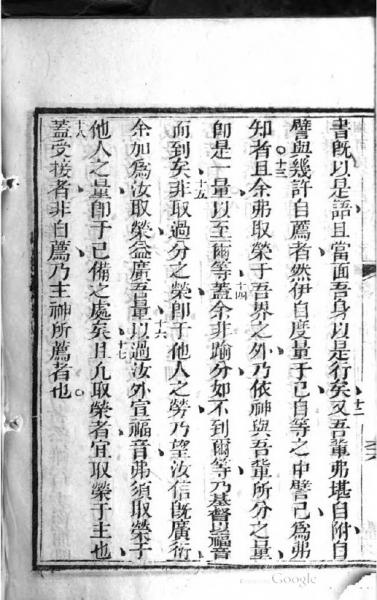 書既以是語且當面吾身以是行矣又吾輩弗堪自附自
十二
譬與幾許自薦者然伊自度量于己自等之中譬己為弗
知者且余弗取榮于吾界之外乃依神與吾輩所分之量
十三
即是一量以至爾等蓋余非踰分如不到爾等乃基督以福音
十四
而到矣非取過分之榮即于他人之勞乃望汝信既廣衍
十五
余加為汝取榮益廣吾量以過汝外宣福音弗須取榮于
十六
他人之量即于己備之處矣且凡取榮者宜取榮于主也
十七
蓋受接者非自薦乃主神所薦者也
十八
Google